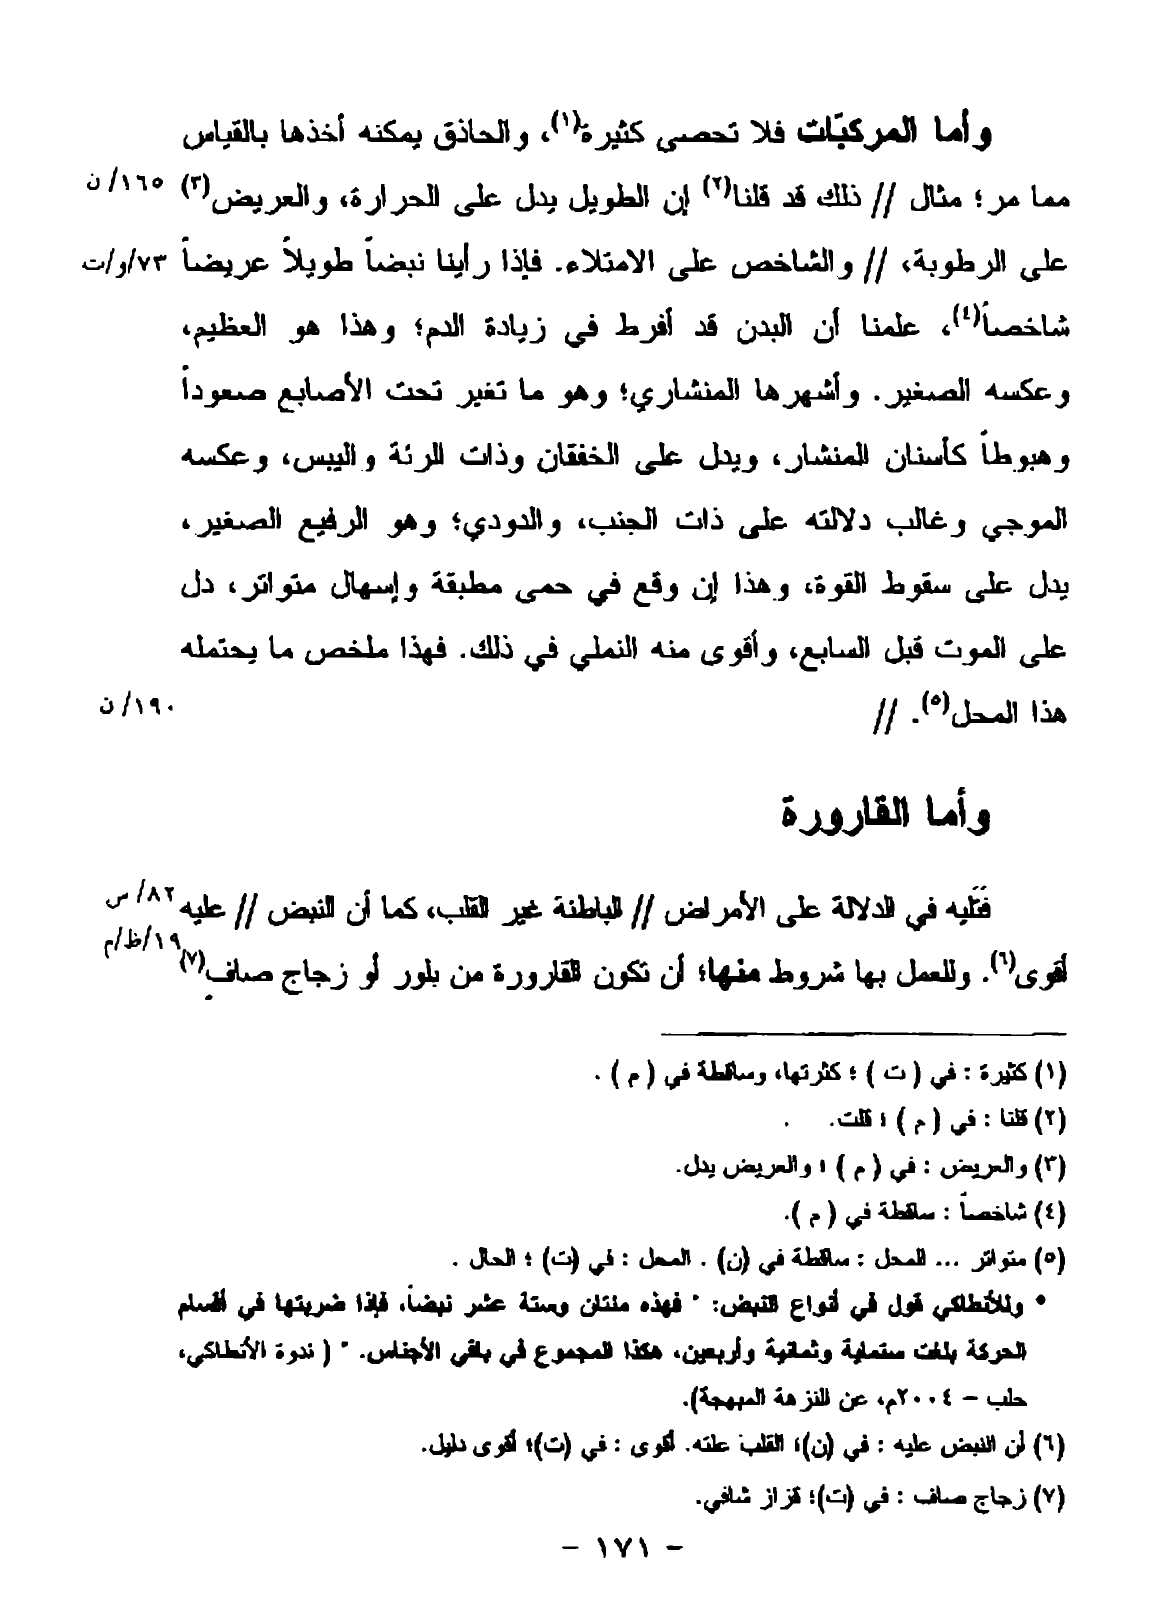 وأما المركبّات فلا تحصى كثيرة(١)، والحاذق يمكنه أخذها بالقياس
مما مر؛ مثال // ذلك قد قلنا(٢) إن الطويل يدل على الحرارة، والعريض(٣) ١٦٥/ن
على الرطوبة، // والشاخص على الامتلاء. فإذا رأينا نبضاً طويلاً عريضاً ٧٣/و/ت
شاخصاً(٤)، علمنا أن البدن قد أفرط في زيادة الدم؛ وهذا هو العظيم،
وعكسه الصغير. وأشهرها المنشاري؛ وهو ما تغير تحت الأصابع صعوداً
وهبوطاً كأسنان المنشار، ويدل على الخفقان وذات الرئة واليبس، وعكسه
الموجي وغالب دلالته على ذات الجنب، والدودي؛ وهو الرفيع الصغير،
يدل على سقوط القوة، وهذا إن وقع في حمى مطبقة وإسهال متواتر، دل
على الموت قبل السابع، وأقوى منه النملي في ذلك. فهذا ملخص ما يحتمله
هذا المحل(٥). // ١٩٠/ن
وأما القارورة
فَتَليه في الدلالة على الأمراض // الباطنة غير القلب، كما أن النبض // عليه ٨٢/س
أقوى(٦). وللعمل بها شروط منها؛ أن تكون القارورة من بلور أو زجاج صافٍ(٧) ١٩/ظ/م
(١) كثيرة : في ( ت ) ؛ كثرتها، وساقطة في ( م ) .
(٢) قلنا : في ( م ) ؛ قلت.
(٣) والعريض : في ( م ) ؛ والعريض يدل.
(٤) شاخصاً : ساقطة في ( م ).
(٥) متواتر ... المحل : ساقطة في (ن) . المحل : في (ت) ؛ الحال .
• وللأنطاكي قول في أنواع النبض: " فهذه مئتان وستة عشر نبضاً، فإذا ضربتها في أقسام
الحركة بلغت ستماية وثمانية وأربعين، هكذا المجموع في باقي الأجناس. " ( ندوة الأنطاكي،
حلب – ٢٠٠٤م، عن النزهة المبهجة).
(٦) أن النبض عليه : في (ن)؛ القلب علته. أقوى : في (ت)؛ أقوى دليل.
(٧) زجاج صاف : في (ت)؛ قزاز شافي.
- ١٧١ -